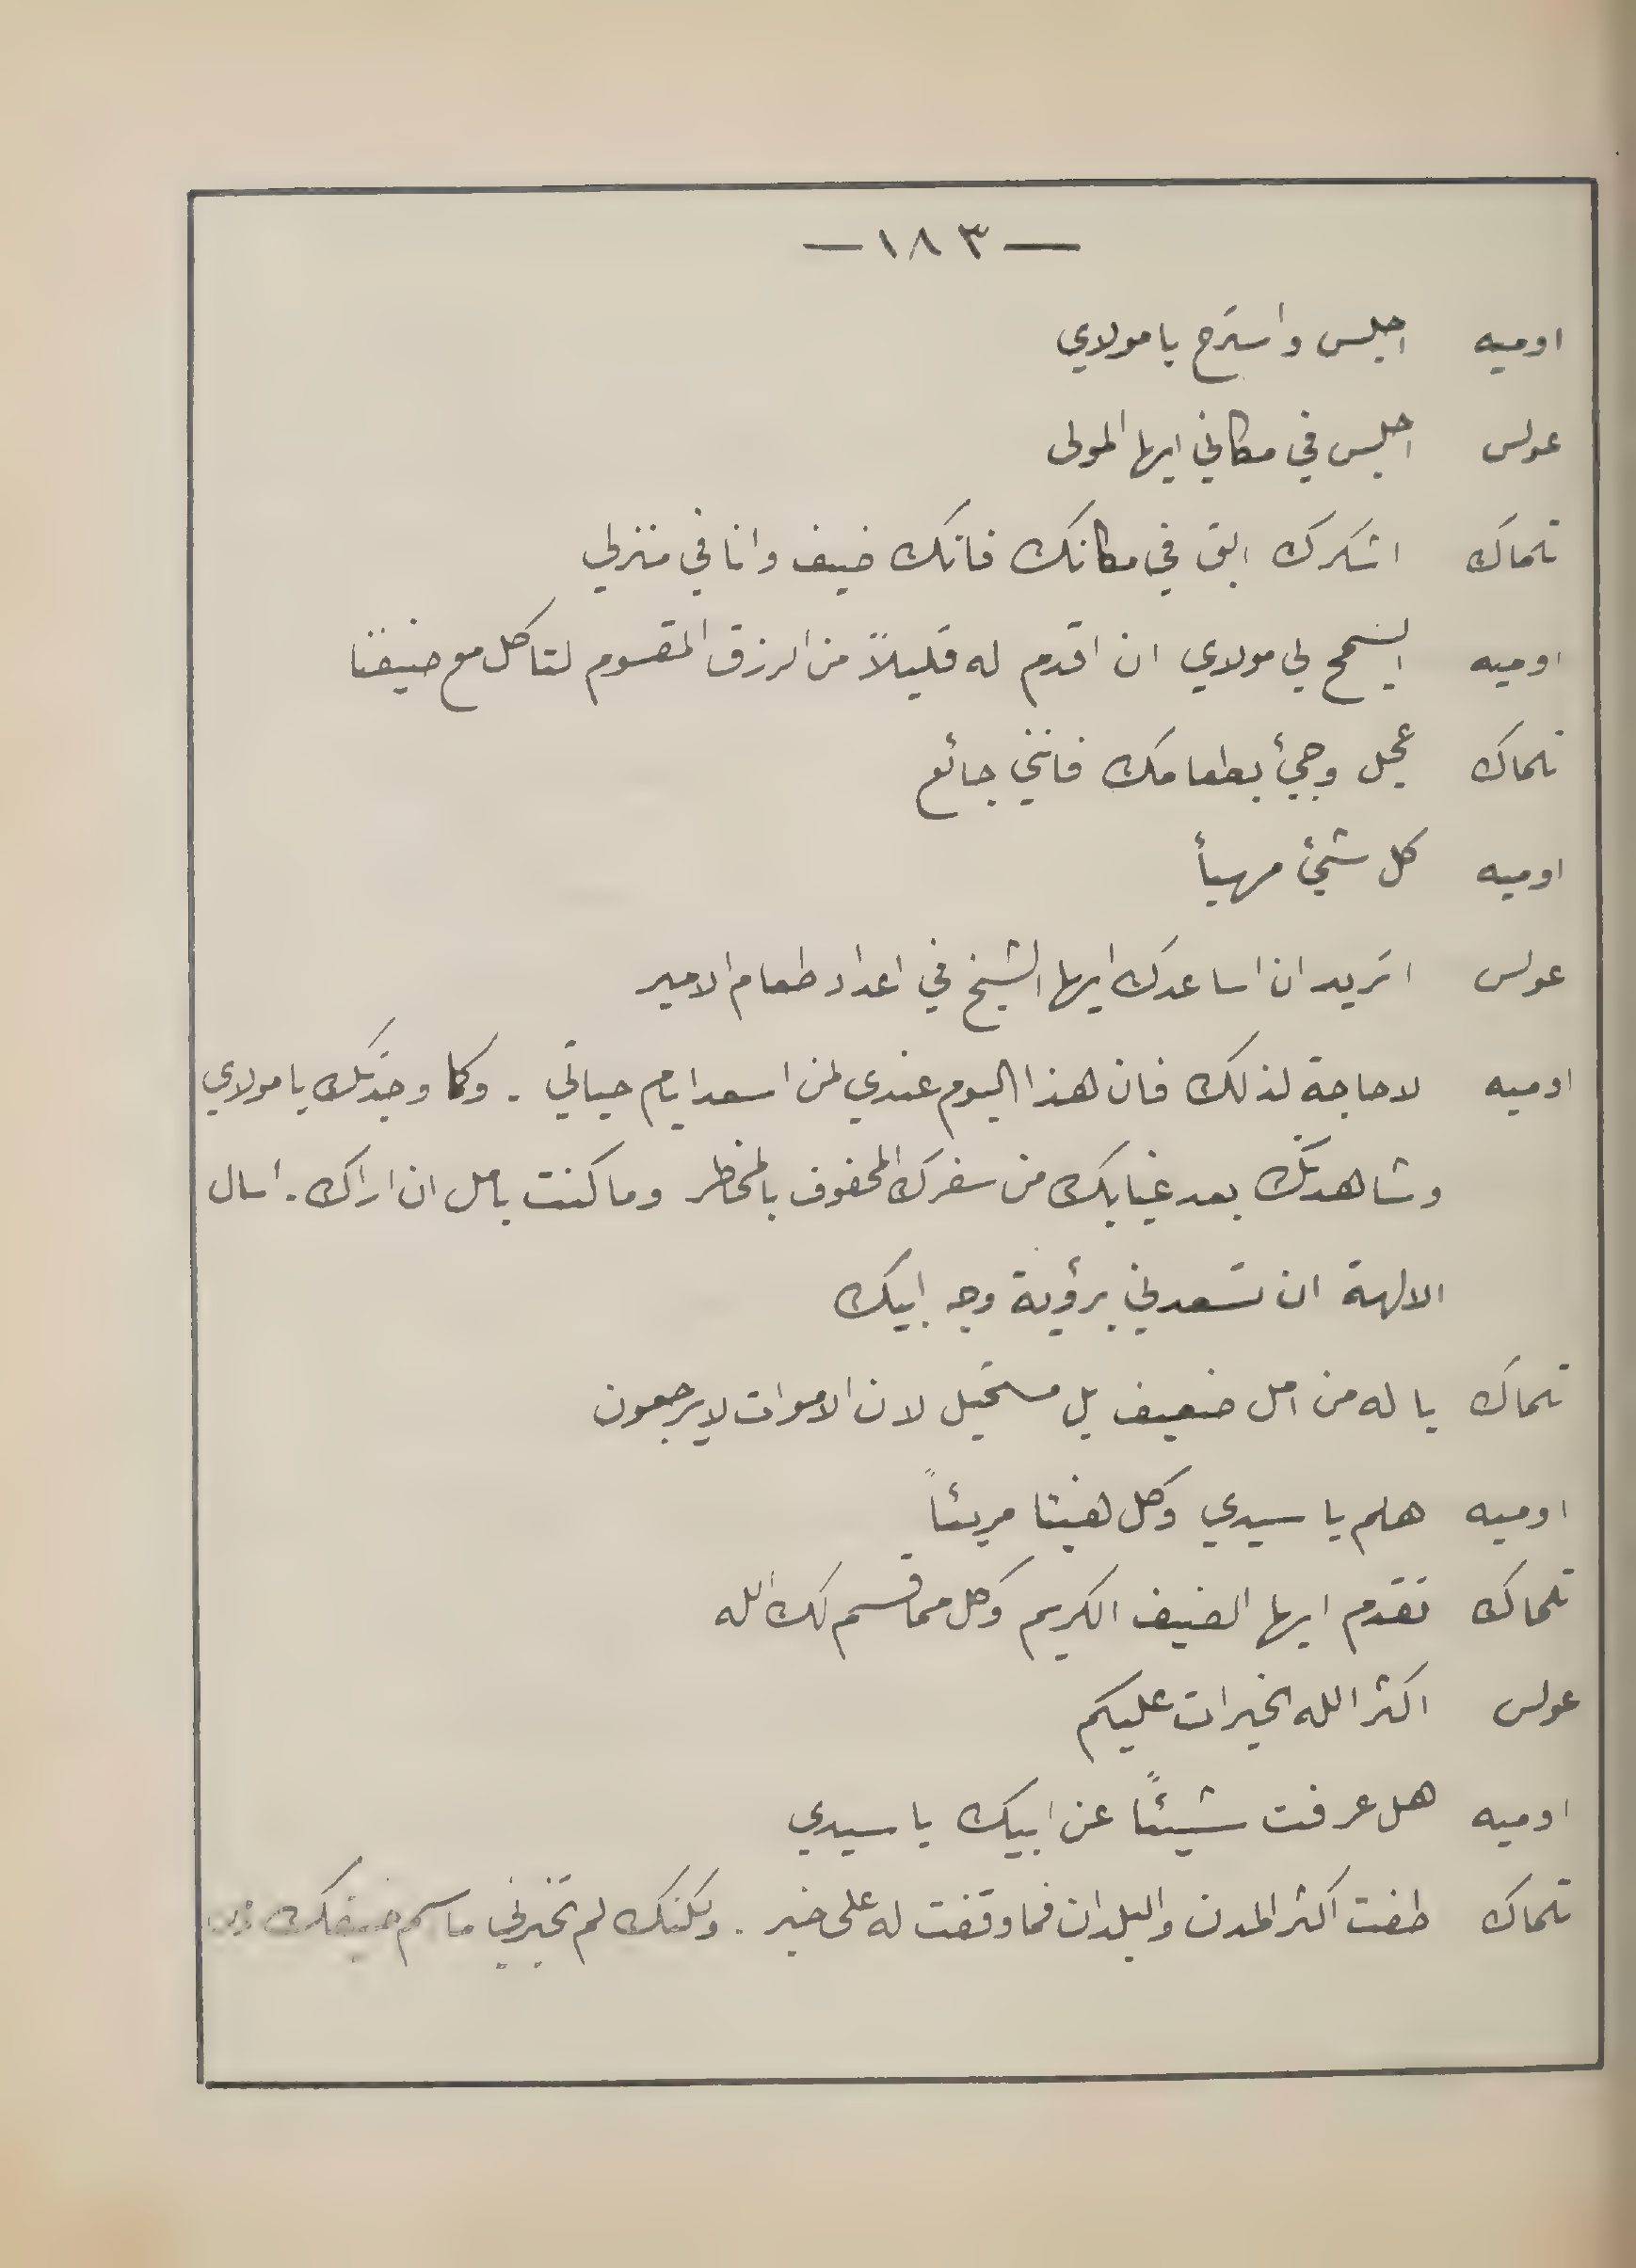 — ١٨٣ —
اوميه اجلس وأسترح يا مولاي
عولس اجلس في مكاني ايها المولى
تلماك اشكرك ابق في مكانك فانك ضيف وانا في منزلي
اوميه ايسمح لي مولاي ان اقدم له قليلاً من الرزق المقسوم لتاكل مع ضيفنا
تلماك عجل وجيء بطعامك فانني جائع
اوميه كل شيئ مهيأ
عولس اتريد ان اساعدك ايها الشيخ في اعداد طعام الامير
اوميه لا حاجة لذلك فان هذا اليوم عندي لمن اسعد ايام حياتي . وكما وجدتك يا مولاي
وشاهدتك بعد غيابك من سفرك المحفوف بالمخاطر وما كنت بامل ان اراك . أسال
الالهة ان تسعدني برؤية وجه ابيك
تلماك يا له من امل ضعيف بل مستحيل لان الاموات لا يرجعون
اوميه هلم يا سيدي وكل هنيئا مريئاً
تلماك تقدم ايها الضيف الكريم وكل مما قسم لك الله
عولس اكثر الله الخيرات عليكم
اوميه هل عرفت شيئاً عن ابيك يا سيدي
تلماك طفت اكثر المدن والبلدان فما وقفت له على خبر . ولكنك لم تخبرني ما اسم ضيفك